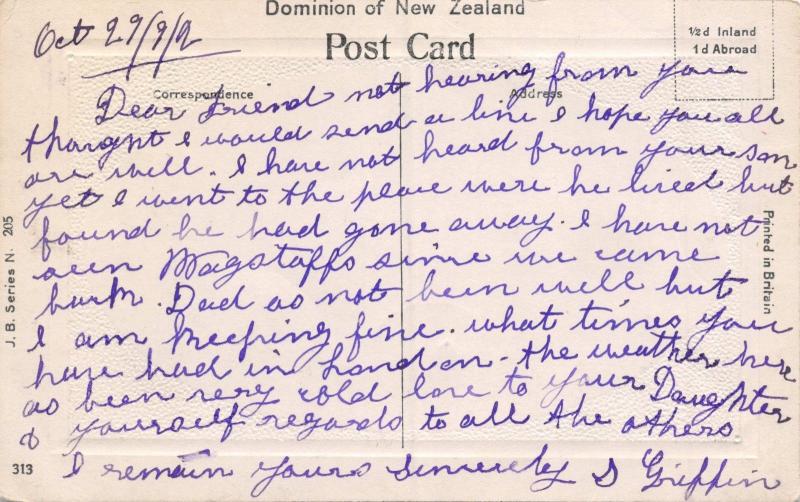 Dominion of New Zealand
Oct 29/9/2
Post Card
½d Inland
1d Abroad
Correspondence
Address
Dear Friend not hearing from you
thought I would send a line I hope you all
are well. I have not heard from your son
yet I went to the place were he lived but
found he had gone away. I have not
seen Wagstaffs since we came
back. Dad as not been well but
I am keeping fine. what times you
have had in London. the weather here
as been very cold love to your Daughter
& yourself regards to all the others
I remain yours Sincerely S Griffin
J. B. Series N. 205
Printed in Britain
313